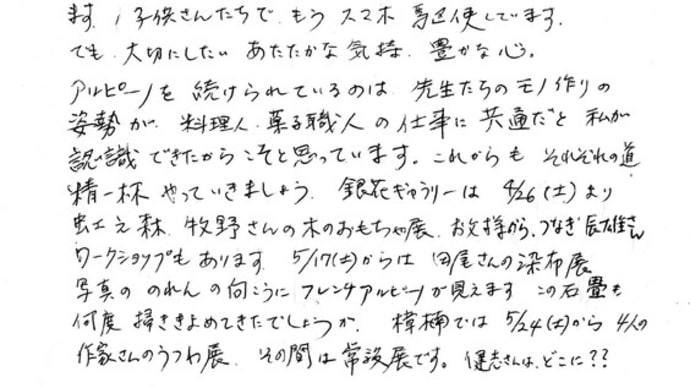 ます。子供さんたちで、もう スマホ 駆使しています。
でも、大切にしたい あたたかな気持、豊かな心。
アルピーノを 続けられているのは、先生たちのモノ作りの
姿勢が、料理人、菓子職人の仕事に共通だと 私が
認識できたからこそと思っています。これからも それぞれの道
精一杯 やっていきましょう。銀花ギャラリーは 4/26(土)より
虹工房 森、牧野さんの木のおもちゃ展、お父様から、つなぎ 辰雄さん
ワークショップも あります 5/17(土)からは 田尾さんの染布展
写真の のれんの向こうに フレンチアルピーノが見えます この石畳も
何度 掃ききよめてきたでしょうか。樟楠では 5/24(土)から 4人の
作家さんのうつわ展、その間は 常設展です。健志さんは、どこに??